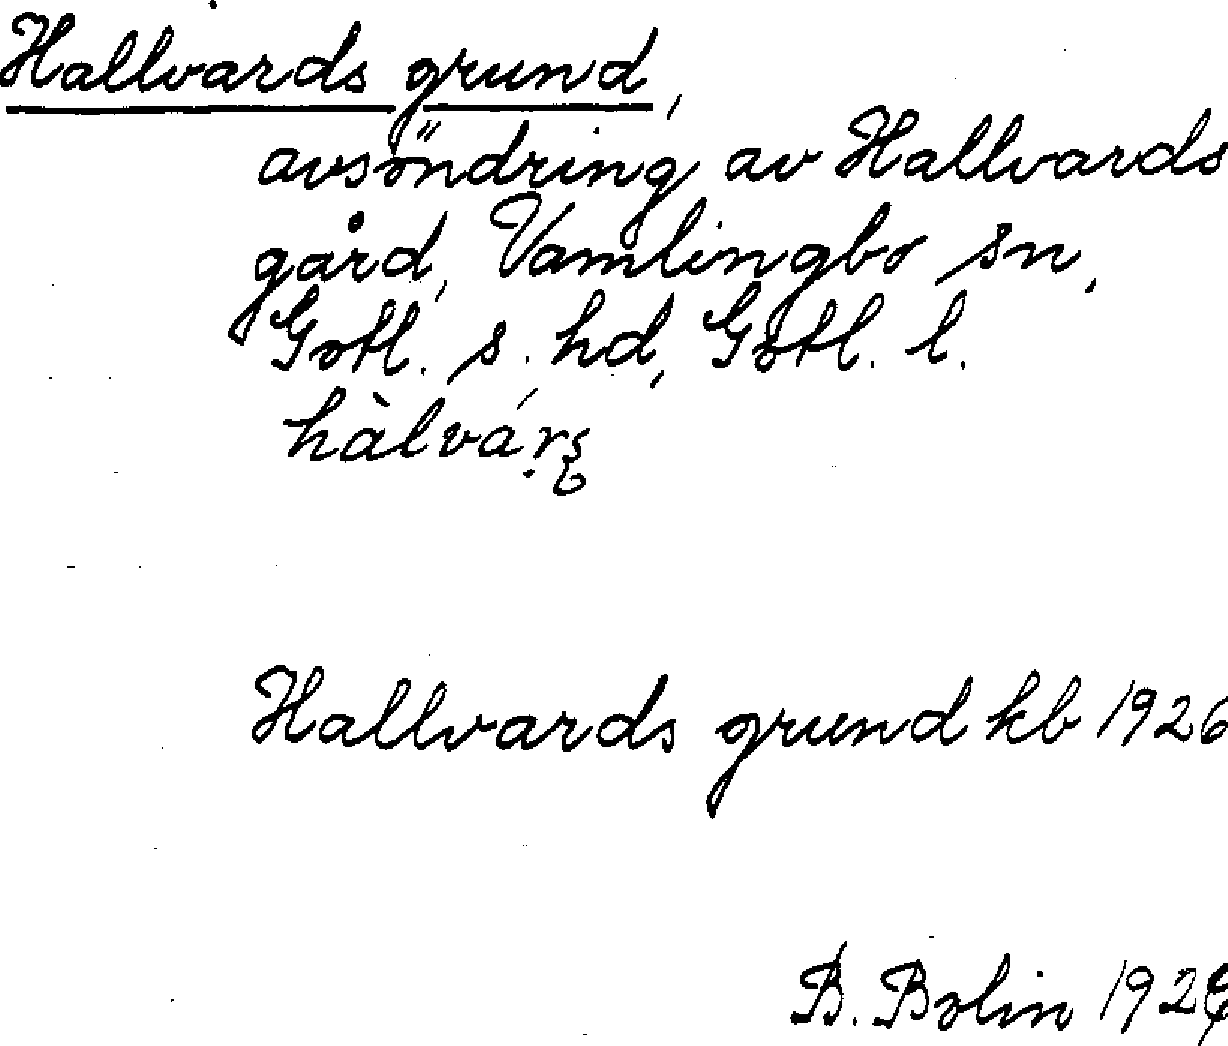 Hallvards grund,
avsöndring av Hallvards
gård, Vamlingbo sn,
Gotl. s. hd, Gotl. l.
hàlvár̨ş
Hallvards grund kb 1926
B. Bolin